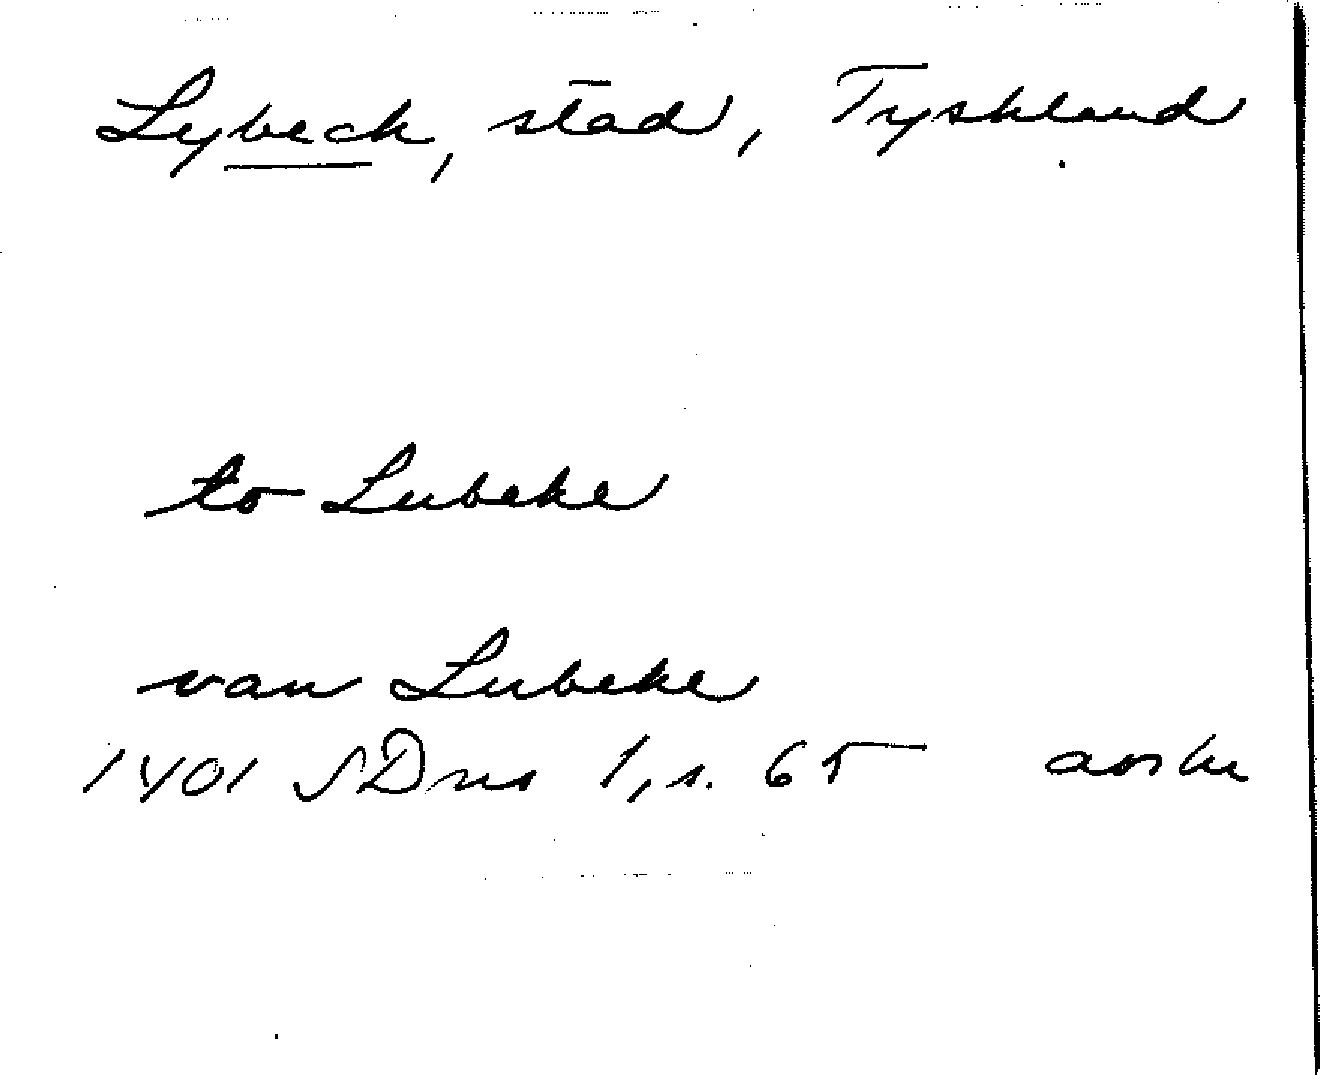 Lybeck, stad, Tyskland
to Lubeke
van Lubeke
1401 SDns 1, s. 65 avskr